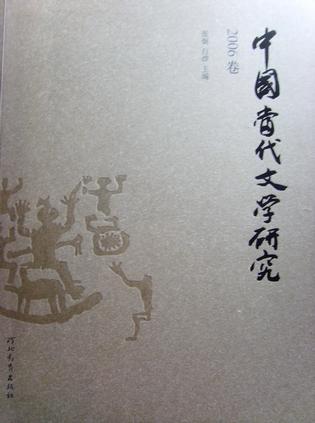 中国当代文学研究
2006 卷
主编
河北教育出版社